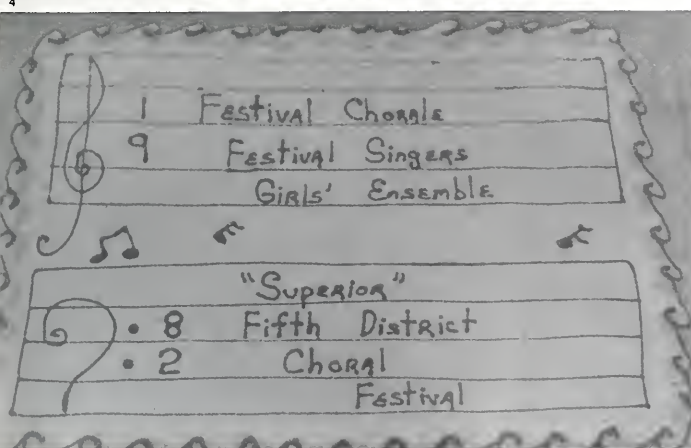 4
1 Festival Chorale
9 Festival Singers
Girls' Ensemble
"Superior"
8 Fifth District
2 Choral
Festival